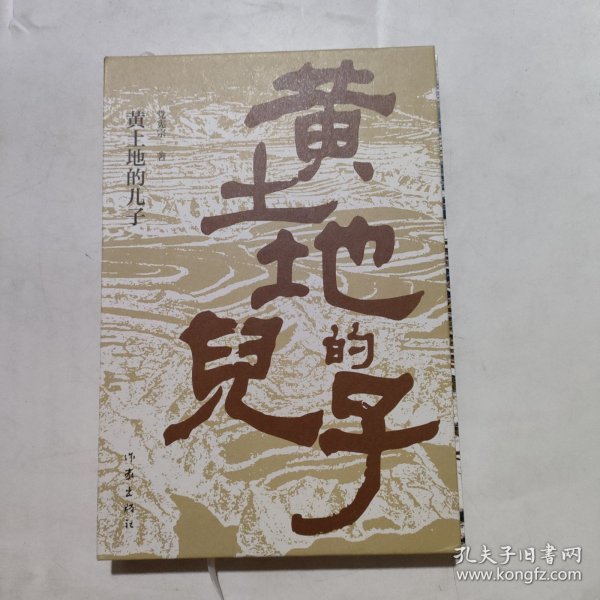 黄
土
地
的
兒
子
黄土地的儿子
党益民 著
作家出版社
孔夫子旧书网
www.kongfz.com